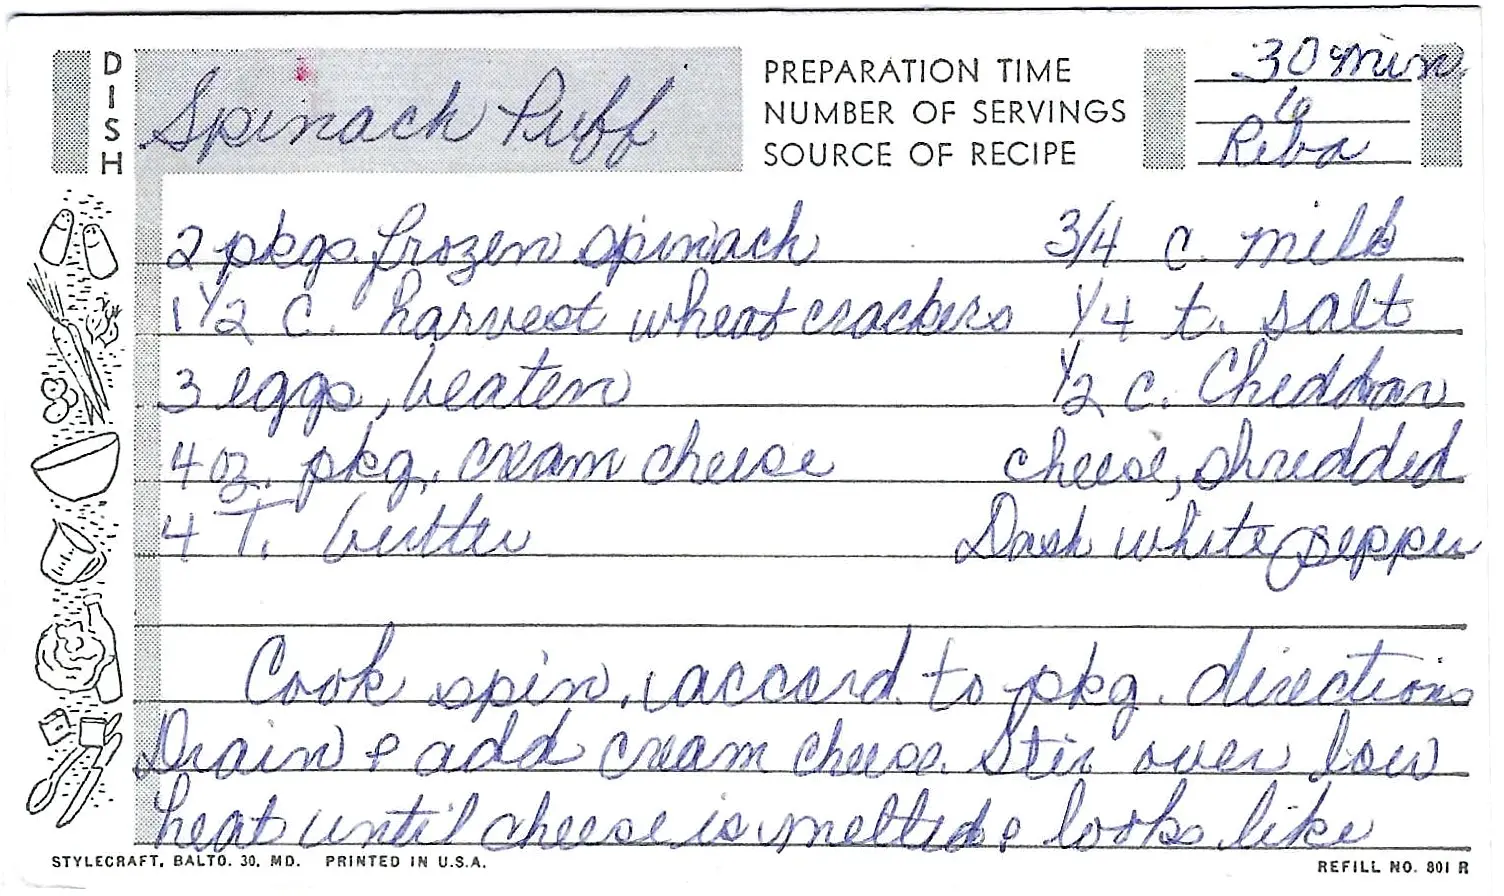 DISH
Spinach Puff
PREPARATION TIME 30 min.
NUMBER OF SERVINGS 6
SOURCE OF RECIPE Reba
2 pkgs. frozen spinach 3/4 c. milk
1 1/2 c. harvest wheat crackers 1/4 t. salt
3 eggs, beaten 1/2 c. Cheddar
4 oz. pkg. cream cheese cheese, shredded
4 T. butter Dash white pepper
Cook spin. accord. to pkg. directions
Drain & add cream cheese. Stir over low
heat until cheese is melted & looks like
STYLECRAFT, BALTO. 30, MD. PRINTED IN U.S.A. REFILL NO. 801 R